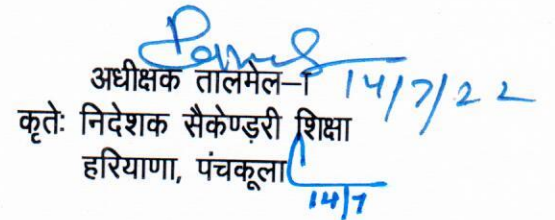 अधीक्षक तालमेल–I 14/7/22
कृतेः निदेशक सैकेण्ड़री शिक्षा
हरियाणा, पंचकूला
14/7